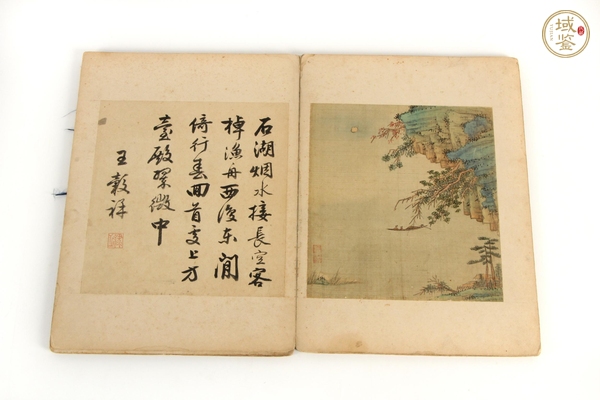 石湖烟水接長空客
棹漁舟西復东閒
倚行春回首處上方
臺殿翠微中
王穀祥
域鑒